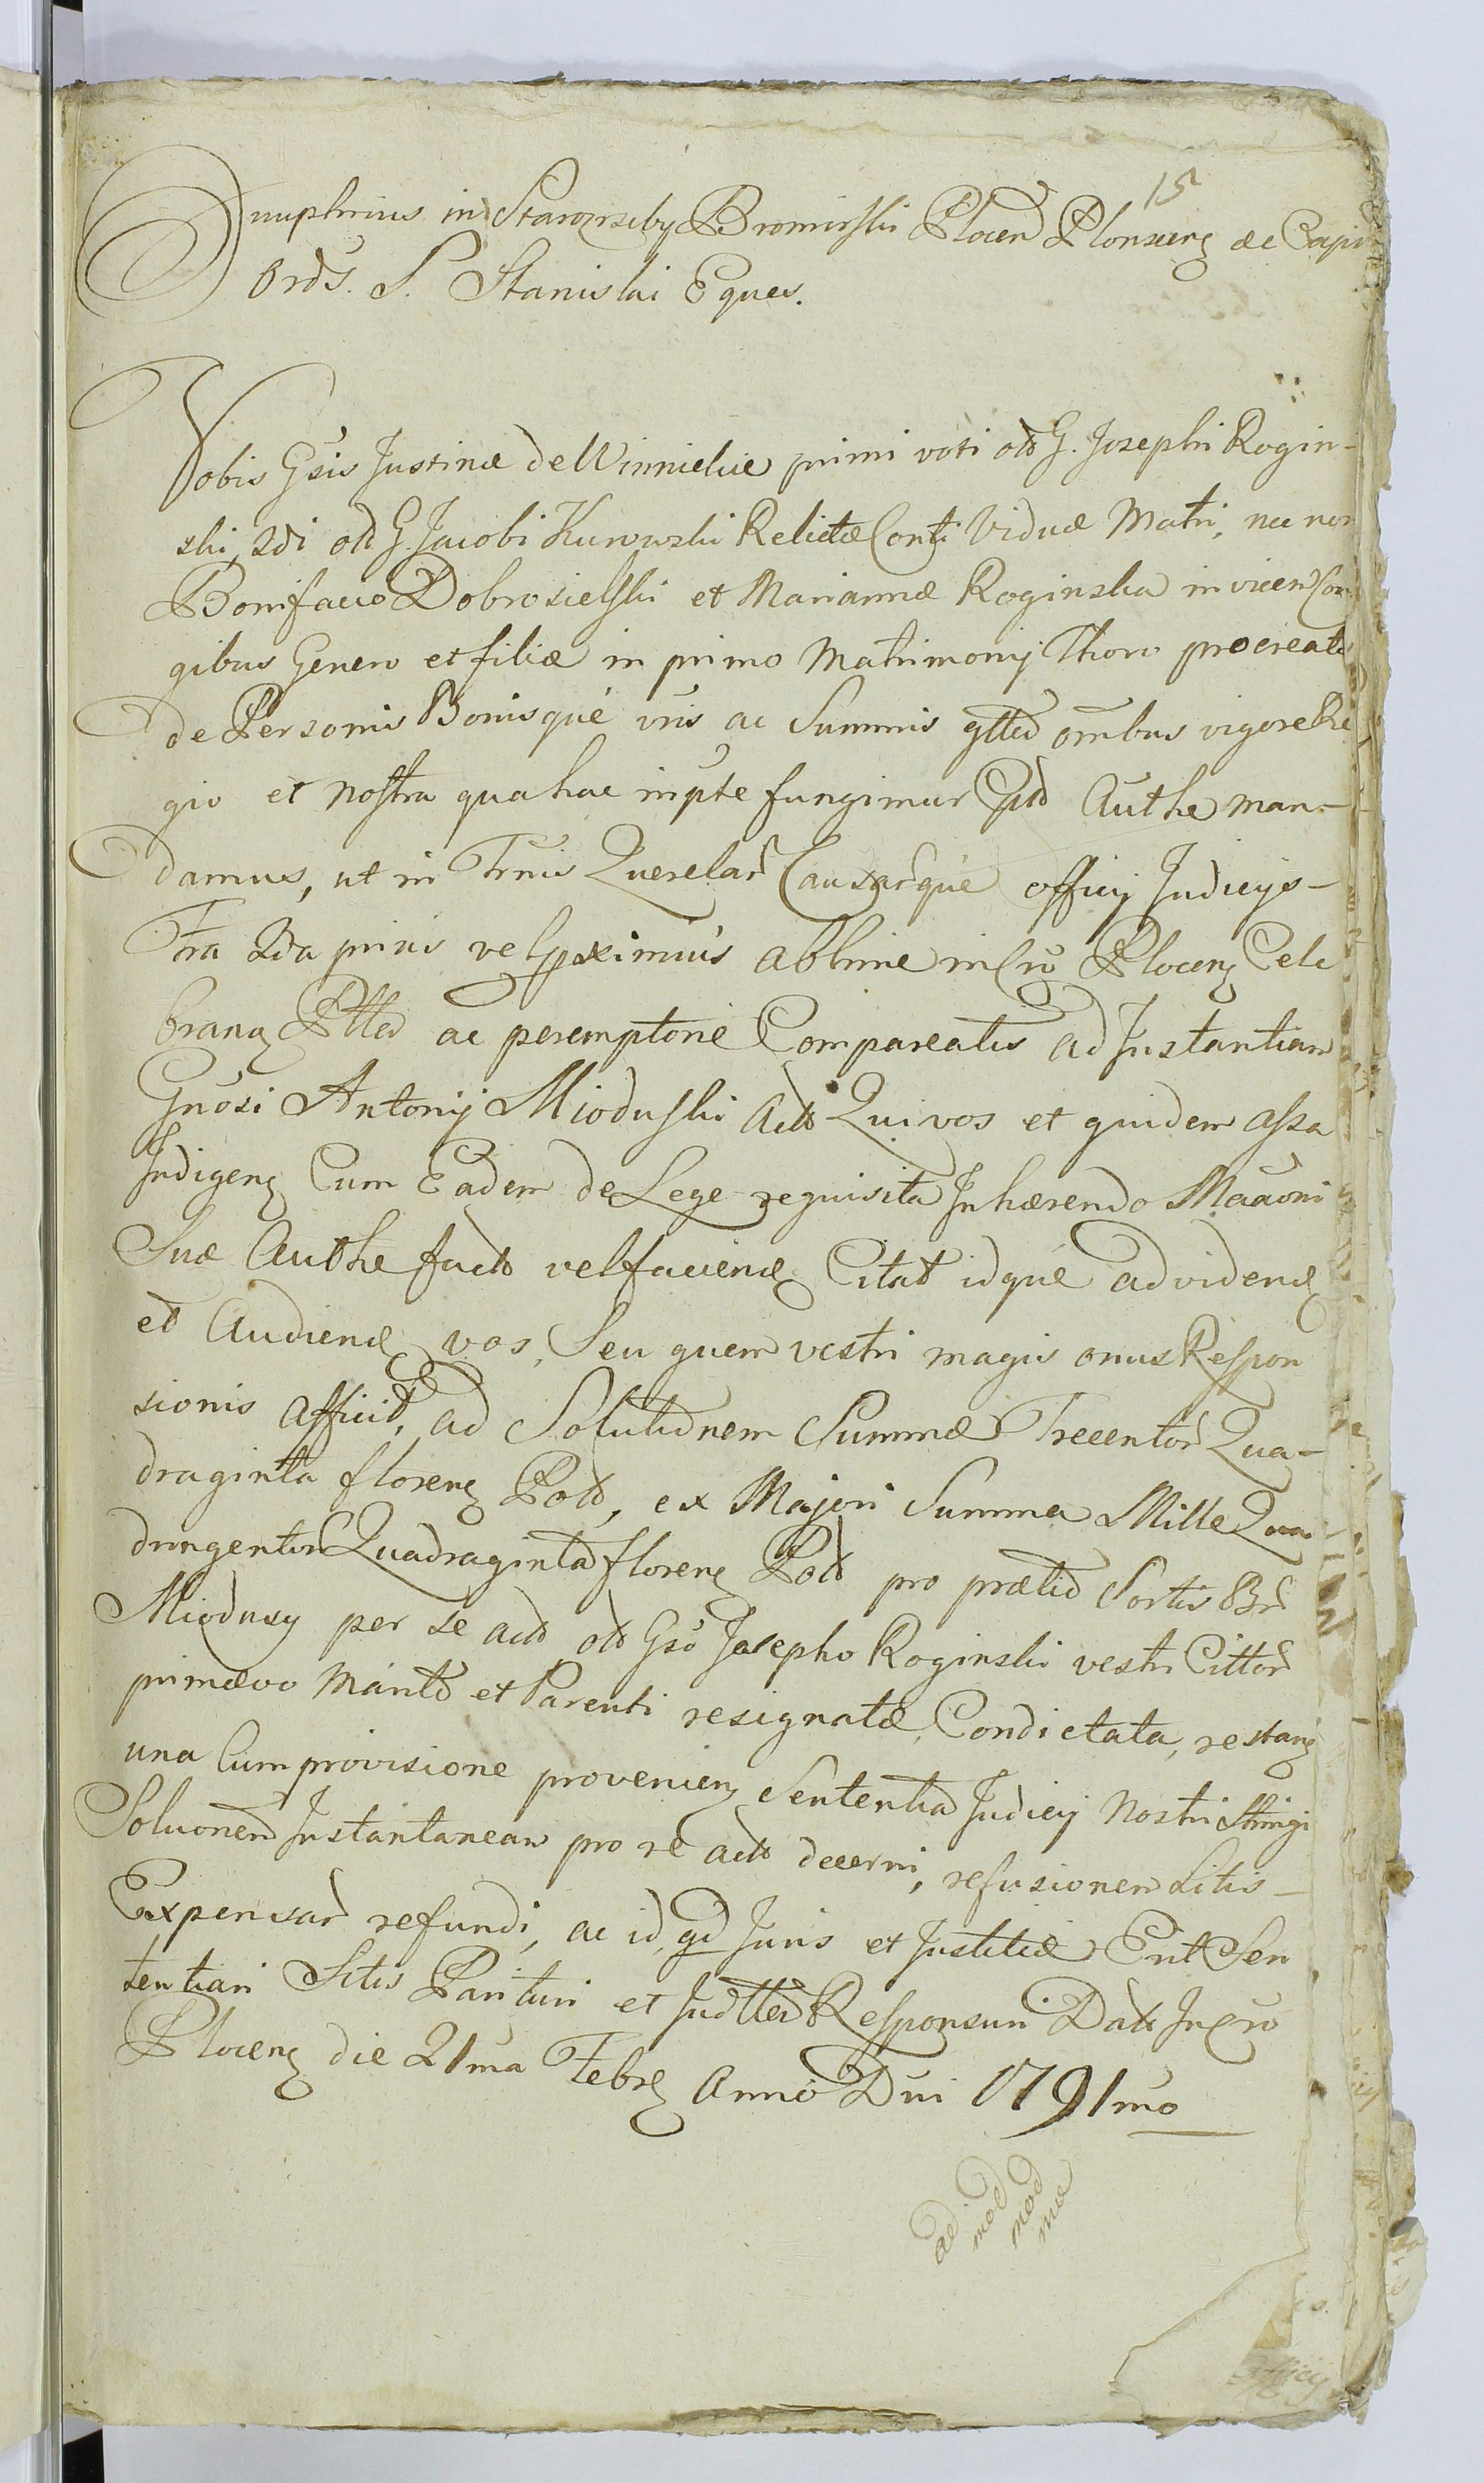 15
Onuphrius in Staroźreby Bromirski Plocen Plonscens &c Capi
Ords. S. Stanislai Eques.
Vobis Gsis Justinæ de Winnickie primi voti olb G. Josephi Rogin-
ski, 2di olb G. Jacobi Kurowski Relictæ Conti Viduæ Matri, nec non
Bonifacio Dobrosielski et Mariannæ Roginska invicem Con
gibus Genero et filiæ in primo Matrimonij Thoro procreatæ
de Personis Bonisque vris ac Summis gtter omibus vigore Re
gio et nostra qua hac in pte fungimur Cptb Authe man-
damus, ut in Trnis Querelar Causarque officij Judicijs-
Fra 2da prius vel proximius abhinc in Cro Plocens Cele
brans Ptter ac peremptorie Compareatis ad Instantiam
Gnosi Antonij Mioduski Actb Qui vos et quidem assa
Indigens Cum Eadem de Lege requisita Inhærendo Maaoni
Suæ Authe factb vel faciend Citat idque ad vidend
et Audiend vos, Seu quem vestri magis onus Respon
sionis afficit, ad Solutionem Summæ Trecentor Qua-
draginta floreng Polb, ex Majori Summa Mille Qua
dringentor Quadraginta floreng Polb pro prætio Sortis Br
Miodusy per se actb olb Gso Josepho Roginski vestr Cittor
primævo Marito et Parenti resignatæ, Condictata, restang
una Cum provisione provenieng Sententia Judicij Nostri Stringi
Soluonem Instantaneam pro re actb decerni, refusionem Litis-
Expensar refundi, ac id, qd Juris et Justitiæ Erit Sen
tentiari Sitis Parituri et Judtter Responsuri Datt In Cro
Plocens die 21ma Febrs Anno Dni 1791mo
ad
mod
mod
mo